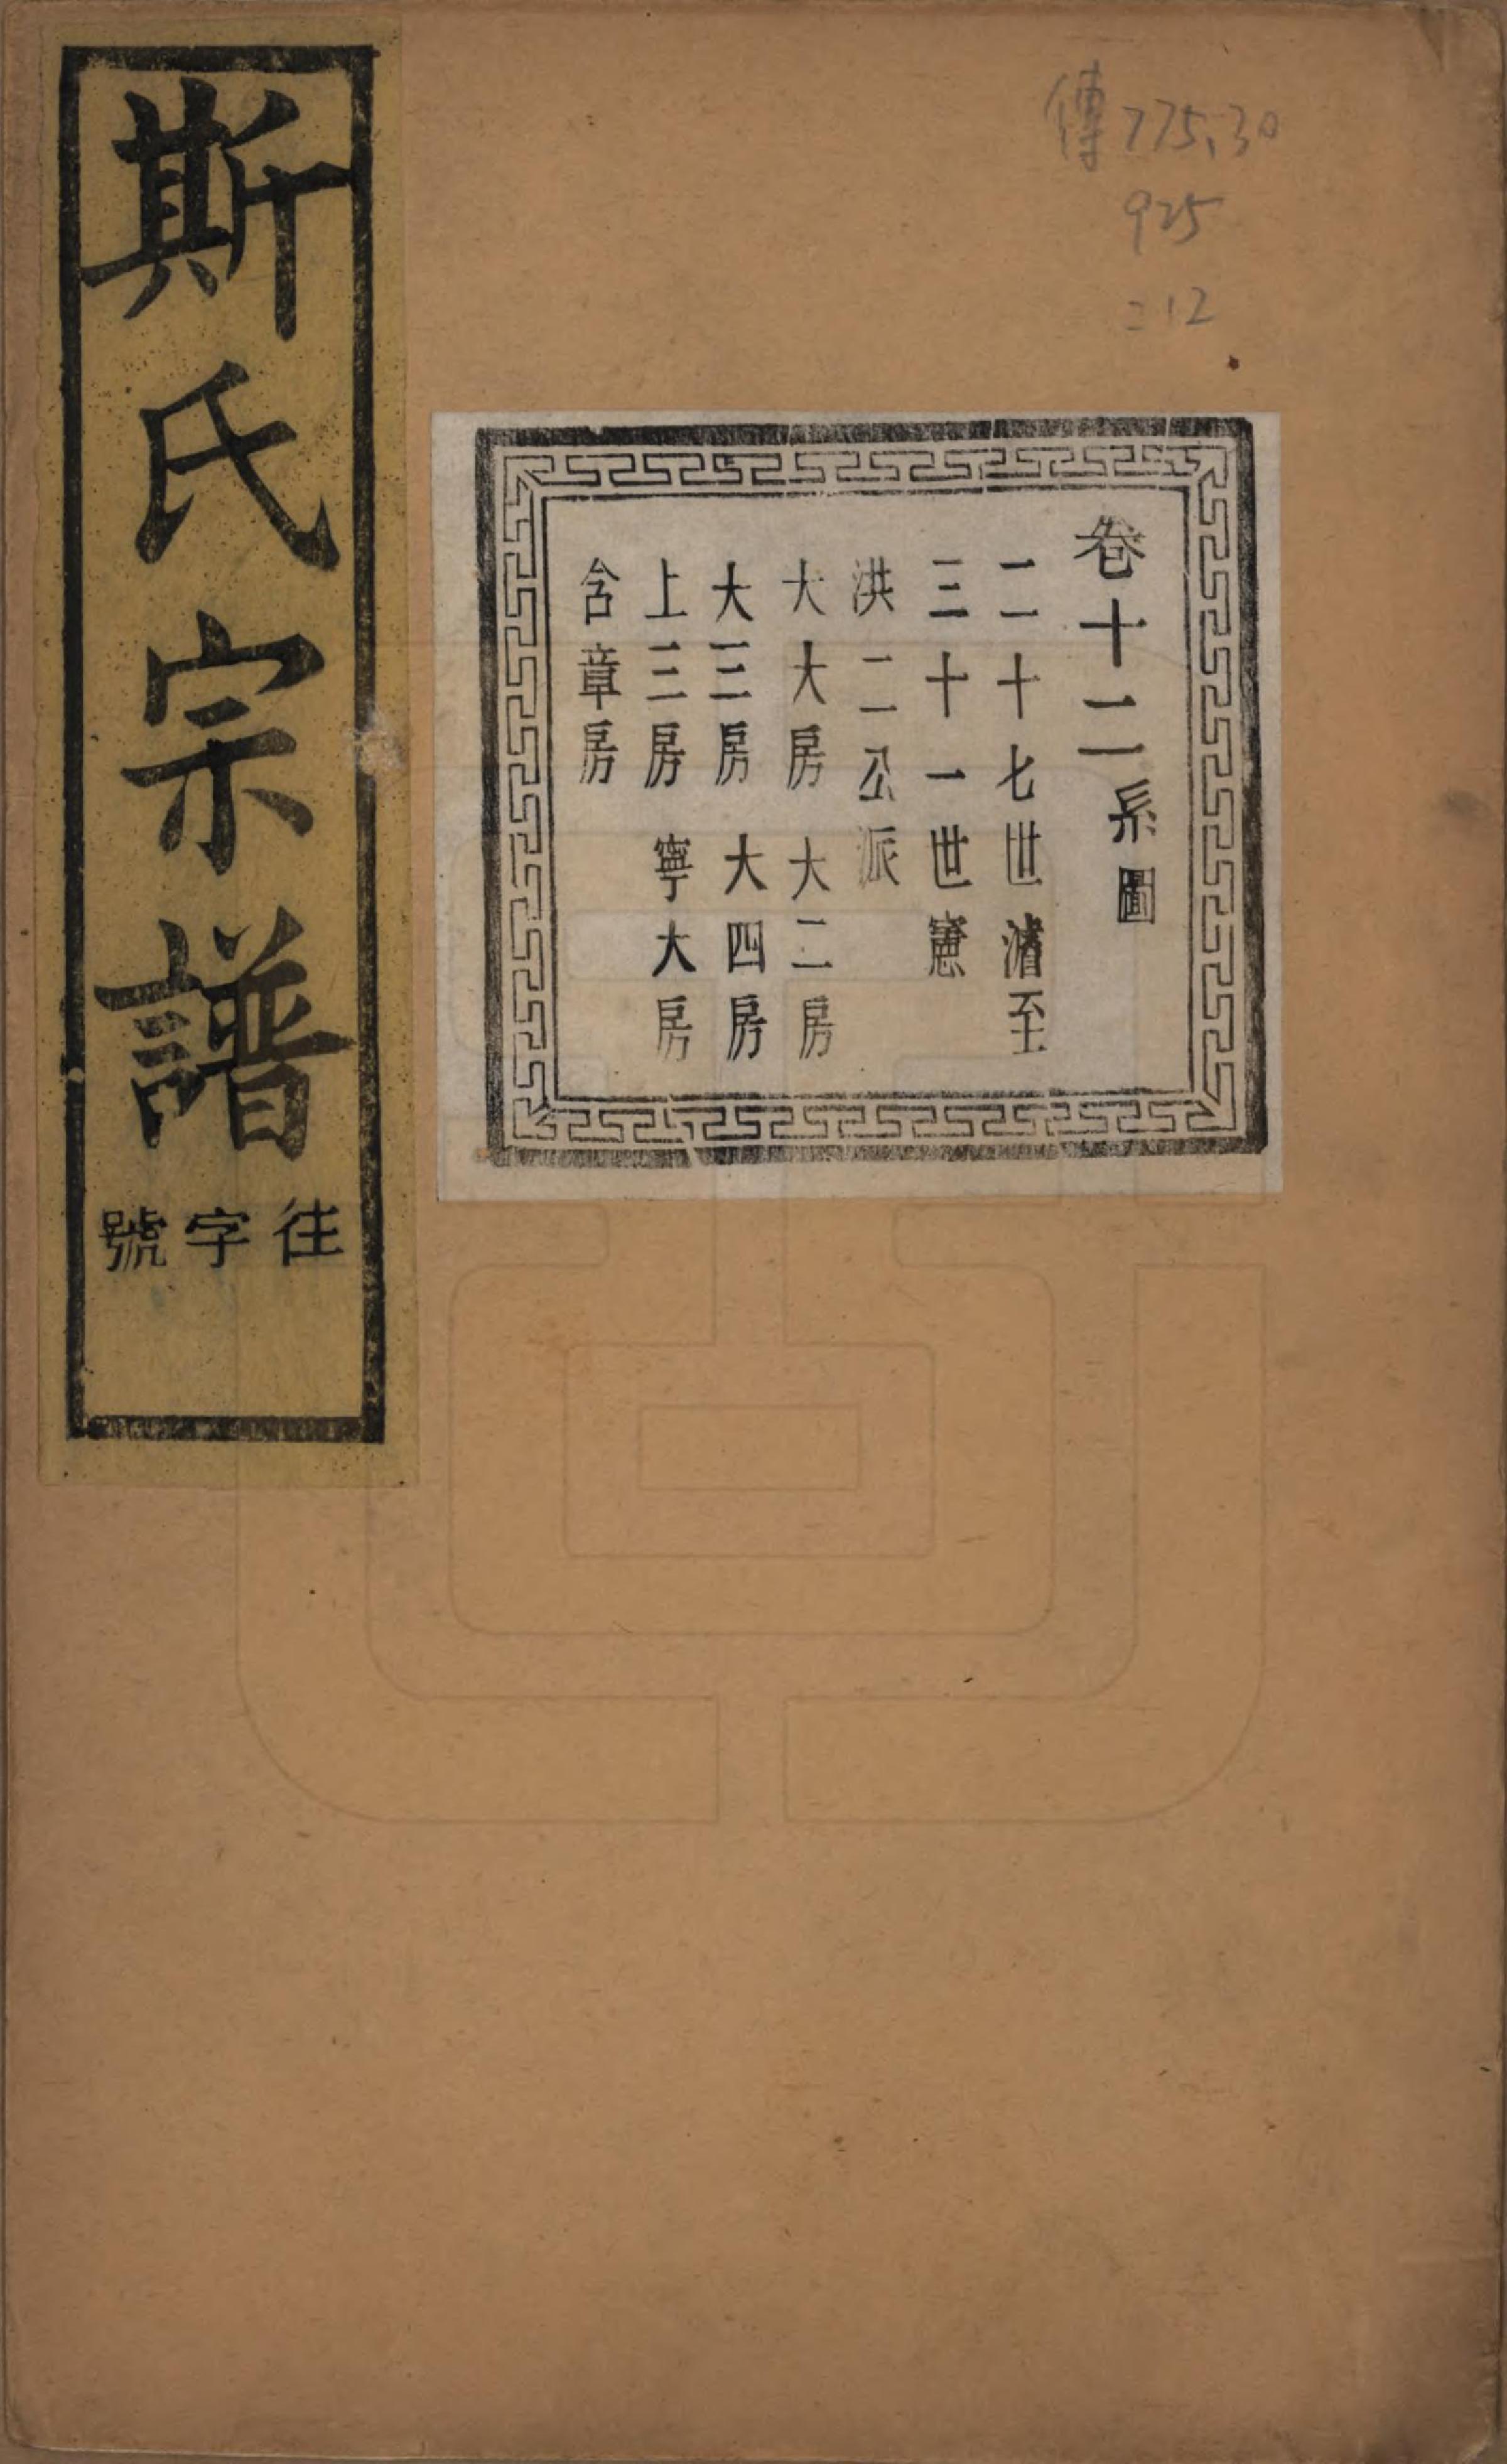 斯氏宗譜
往字號
傳775.30
925
=12
卷十二系圖
二十七世濬至
三十一世憲
洪二公派
大大房 大二房
大三房 大四房
上三房 寧大房
含章房